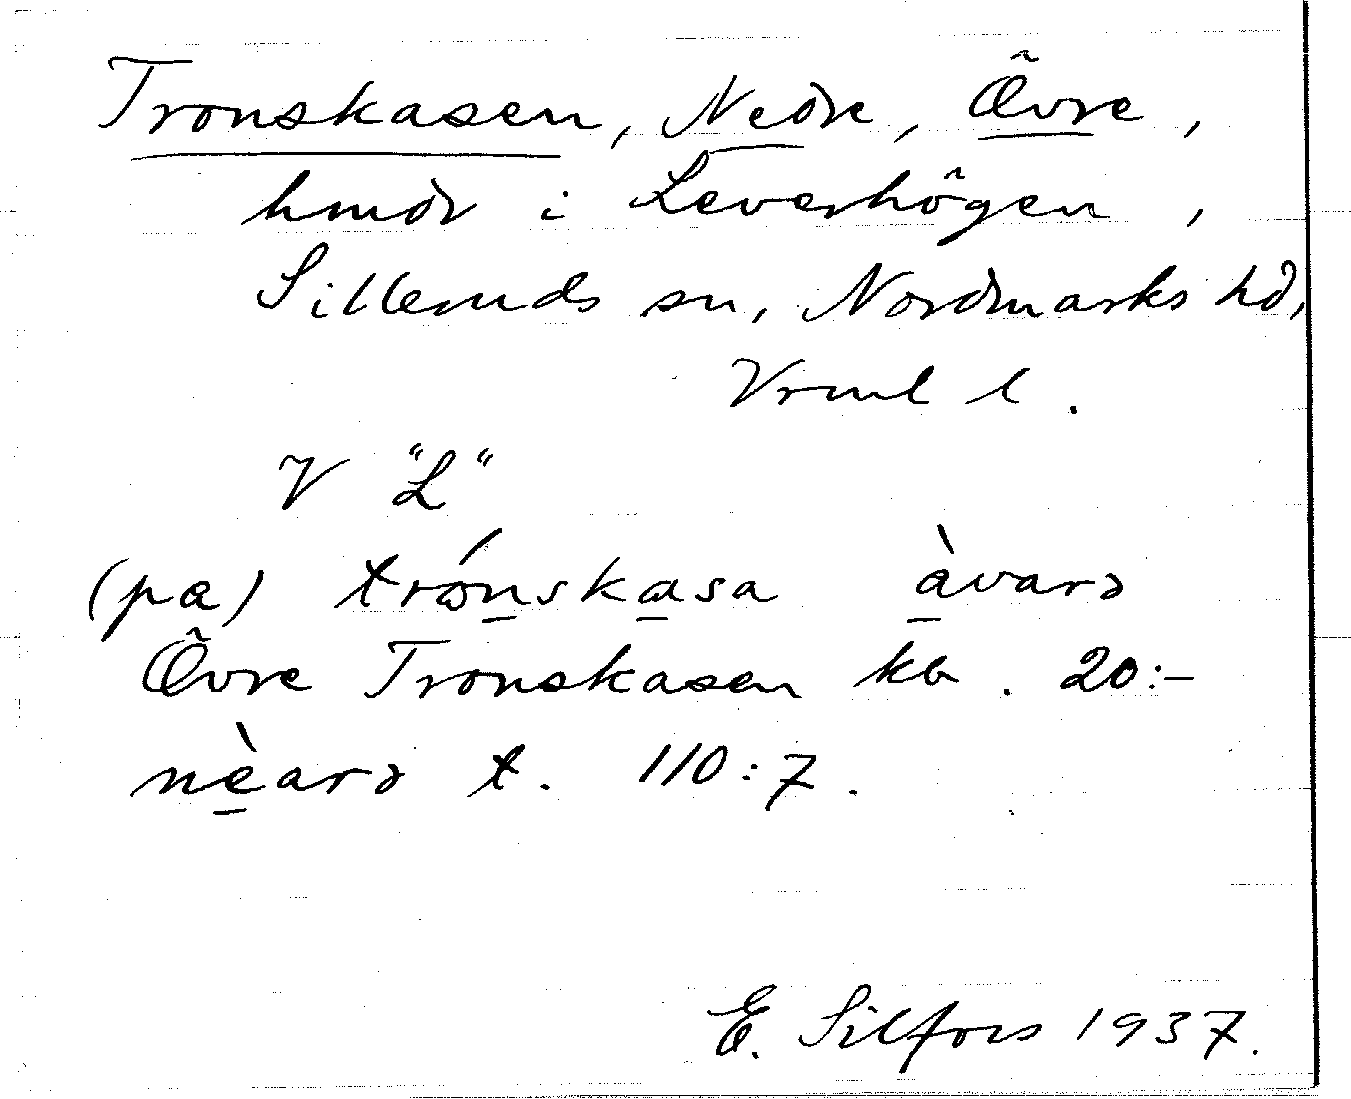 Tronskasen, Nedre, Övre,
hmdr i Leverhögen,
Silleruds sn, Nordmarks hd,
Vrml l.
V "L"
(pa) trónskasa àvarə
Övre Tronskasen kb. 20:-
nèarə t. 110:7.
E. Silfors 1937.